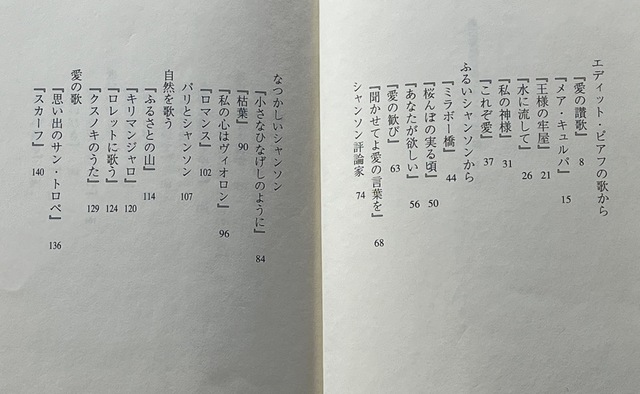 エディット・ピアフの歌から
『愛の讃歌』 8
『メア・キュルパ』 15
『王様の牢屋』 21
『水に流して』 26
『私の神様』 31
『これぞ愛』 37
ふるいシャンソンから
『ミラボー橋』 44
『桜んぼの実る頃』 50
『あなたが欲しい』 56
『愛の歓び』 63
『聞かせてよ愛の言葉を』 68
シャンソン評論家 74
なつかしいシャンソン
『小さなひなげしのように』 84
『枯葉』 90
『私の心はヴィオロン』 96
『ロマンス』 102
パリとシャンソン 107
自然を歌う
『ふるさとの山』 114
『キリマンジャロ』 120
『ロレットに歌う』 124
『クスノキのうた』 129
愛の歌
『思い出のサン・トロペ』 136
『スカーフ』 140